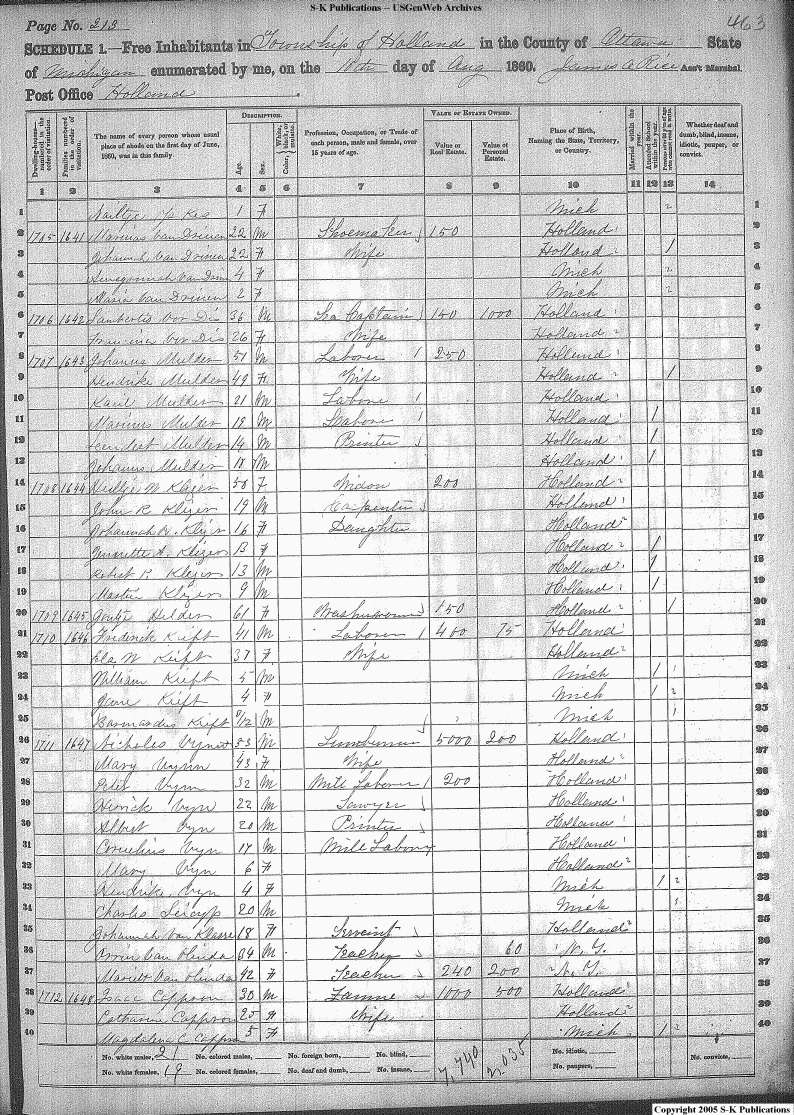 S-K Publications – USGenWeb Archives
Page No. 213
463
SCHEDULE 1.—Free Inhabitants in Township of Holland in the County of Ottawa State
of Michigan enumerated by me, on the 10th day of Aug 1860. James A Rice Ass't Marshal.
Post Office Holland
Dwelling-houses numbered in the order of visitation.
Families numbered in the order of visitation.
The name of every person whose usual place of abode on the first day of June, 1860, was in this family
DESCRIPTION.
Age.
Sex.
Color, White, black, or mulatto.
Profession, Occupation, or Trade of each person, male and female, over 15 years of age.
VALUE OF ESTATE OWNED.
Value of Real Estate.
Value of Personal Estate.
Place of Birth, Naming the State, Territory, or Country.
Married within the year.
Attended School within the year.
Whether deaf and dumb, blind, insane, idiotic, pauper, or convict.
1 2 3 4 5 6 7 8 9 10 11 12 13 14
1 1 F Mich 1
2 1705 1641 Marinus Van Drinen 22 M Shoemaker 150 Holland 2
3 Johannah Van Drinen 22 F Wife Holland 1 3
4 4 F Mich 4
5 Maria Van Drinen 2 F Mich 5
6 1706 1642 Lambertis 36 M Sea Captain 150 1000 Holland 6
7 26 F Wife Holland 7
8 1707 1643 Johanus Mulder 51 M Laborer 250 Holland 8
9 Hendrike Mulder 49 F Wife Holland 1 9
10 Mulder 21 M Labore Holland 10
11 Marinus Mulder 19 M Labore Holland 1 11
12 Leendert Mulder 14 M Printer Holland 1 12
13 Johanus Mulder 11 M Holland 1 13
14 1708 1644 Kleyn 50 F Widow 200 Holland 14
15 John R Kleyn 19 M Carpenter Holland 15
16 Johannah Kleyn 16 F Daughter Holland 16
17 F Holland 1 17
18 Robert P. 13 M Holland 1 18
19 Martin 9 M Holland 1 19
20 1709 1645 61 F Washwoman 150 Holland 1 20
21 1710 1646 Frederick Kieft 41 M Laborer 400 75 Holland 21
22 Ela W Kieft 37 F Wife Holland 22
23 William Kieft 5 M Mich 1 23
24 Jane Kieft 4 F Mich 1 24
25 Kieft 9/12 M Mich 25
26 1711 1647 Nicholes 53 M Lumberman 5000 200 Holland 26
27 Mary Vynn 43 F Wife Holland 27
28 Peter Vynn 32 M Mill Laborer 200 Holland 28
29 Henrick Vyn 22 M Sawyer Holland 29
30 Albert Vyn 20 M Printer Holland 30
31 Cornelius Vyn 17 M Mill Labory Holland 31
32 Mary Vyn 6 F Holland 32
33 Hendrike Vyn 4 F Mich 1 33
34 Charles 20 M Mich 34
35 Johannah Van 18 F Serveint Holland 35
36 Orrin Van Olinda 34 M Teacher 60 N. Y. 36
37 Mariett Van Olinda 42 F Teacher 240 200 N. Y. 37
38 1712 1648 Isaac Cappon 30 M 1000 500 Holland 38
39 Catharin Cappron 25 F Wife Holland 39
40 Magdalena C Cappron 5 F Mich 1 40
No. white males, 21 No. colored males, No. foreign born, No. blind, 7,740 2,035 No. idiotic, No. convicts,
No. white females, 19 No. colored females, No. deaf and dumb, No. insane, No. paupers,
Copyright 2005 S-K Publications